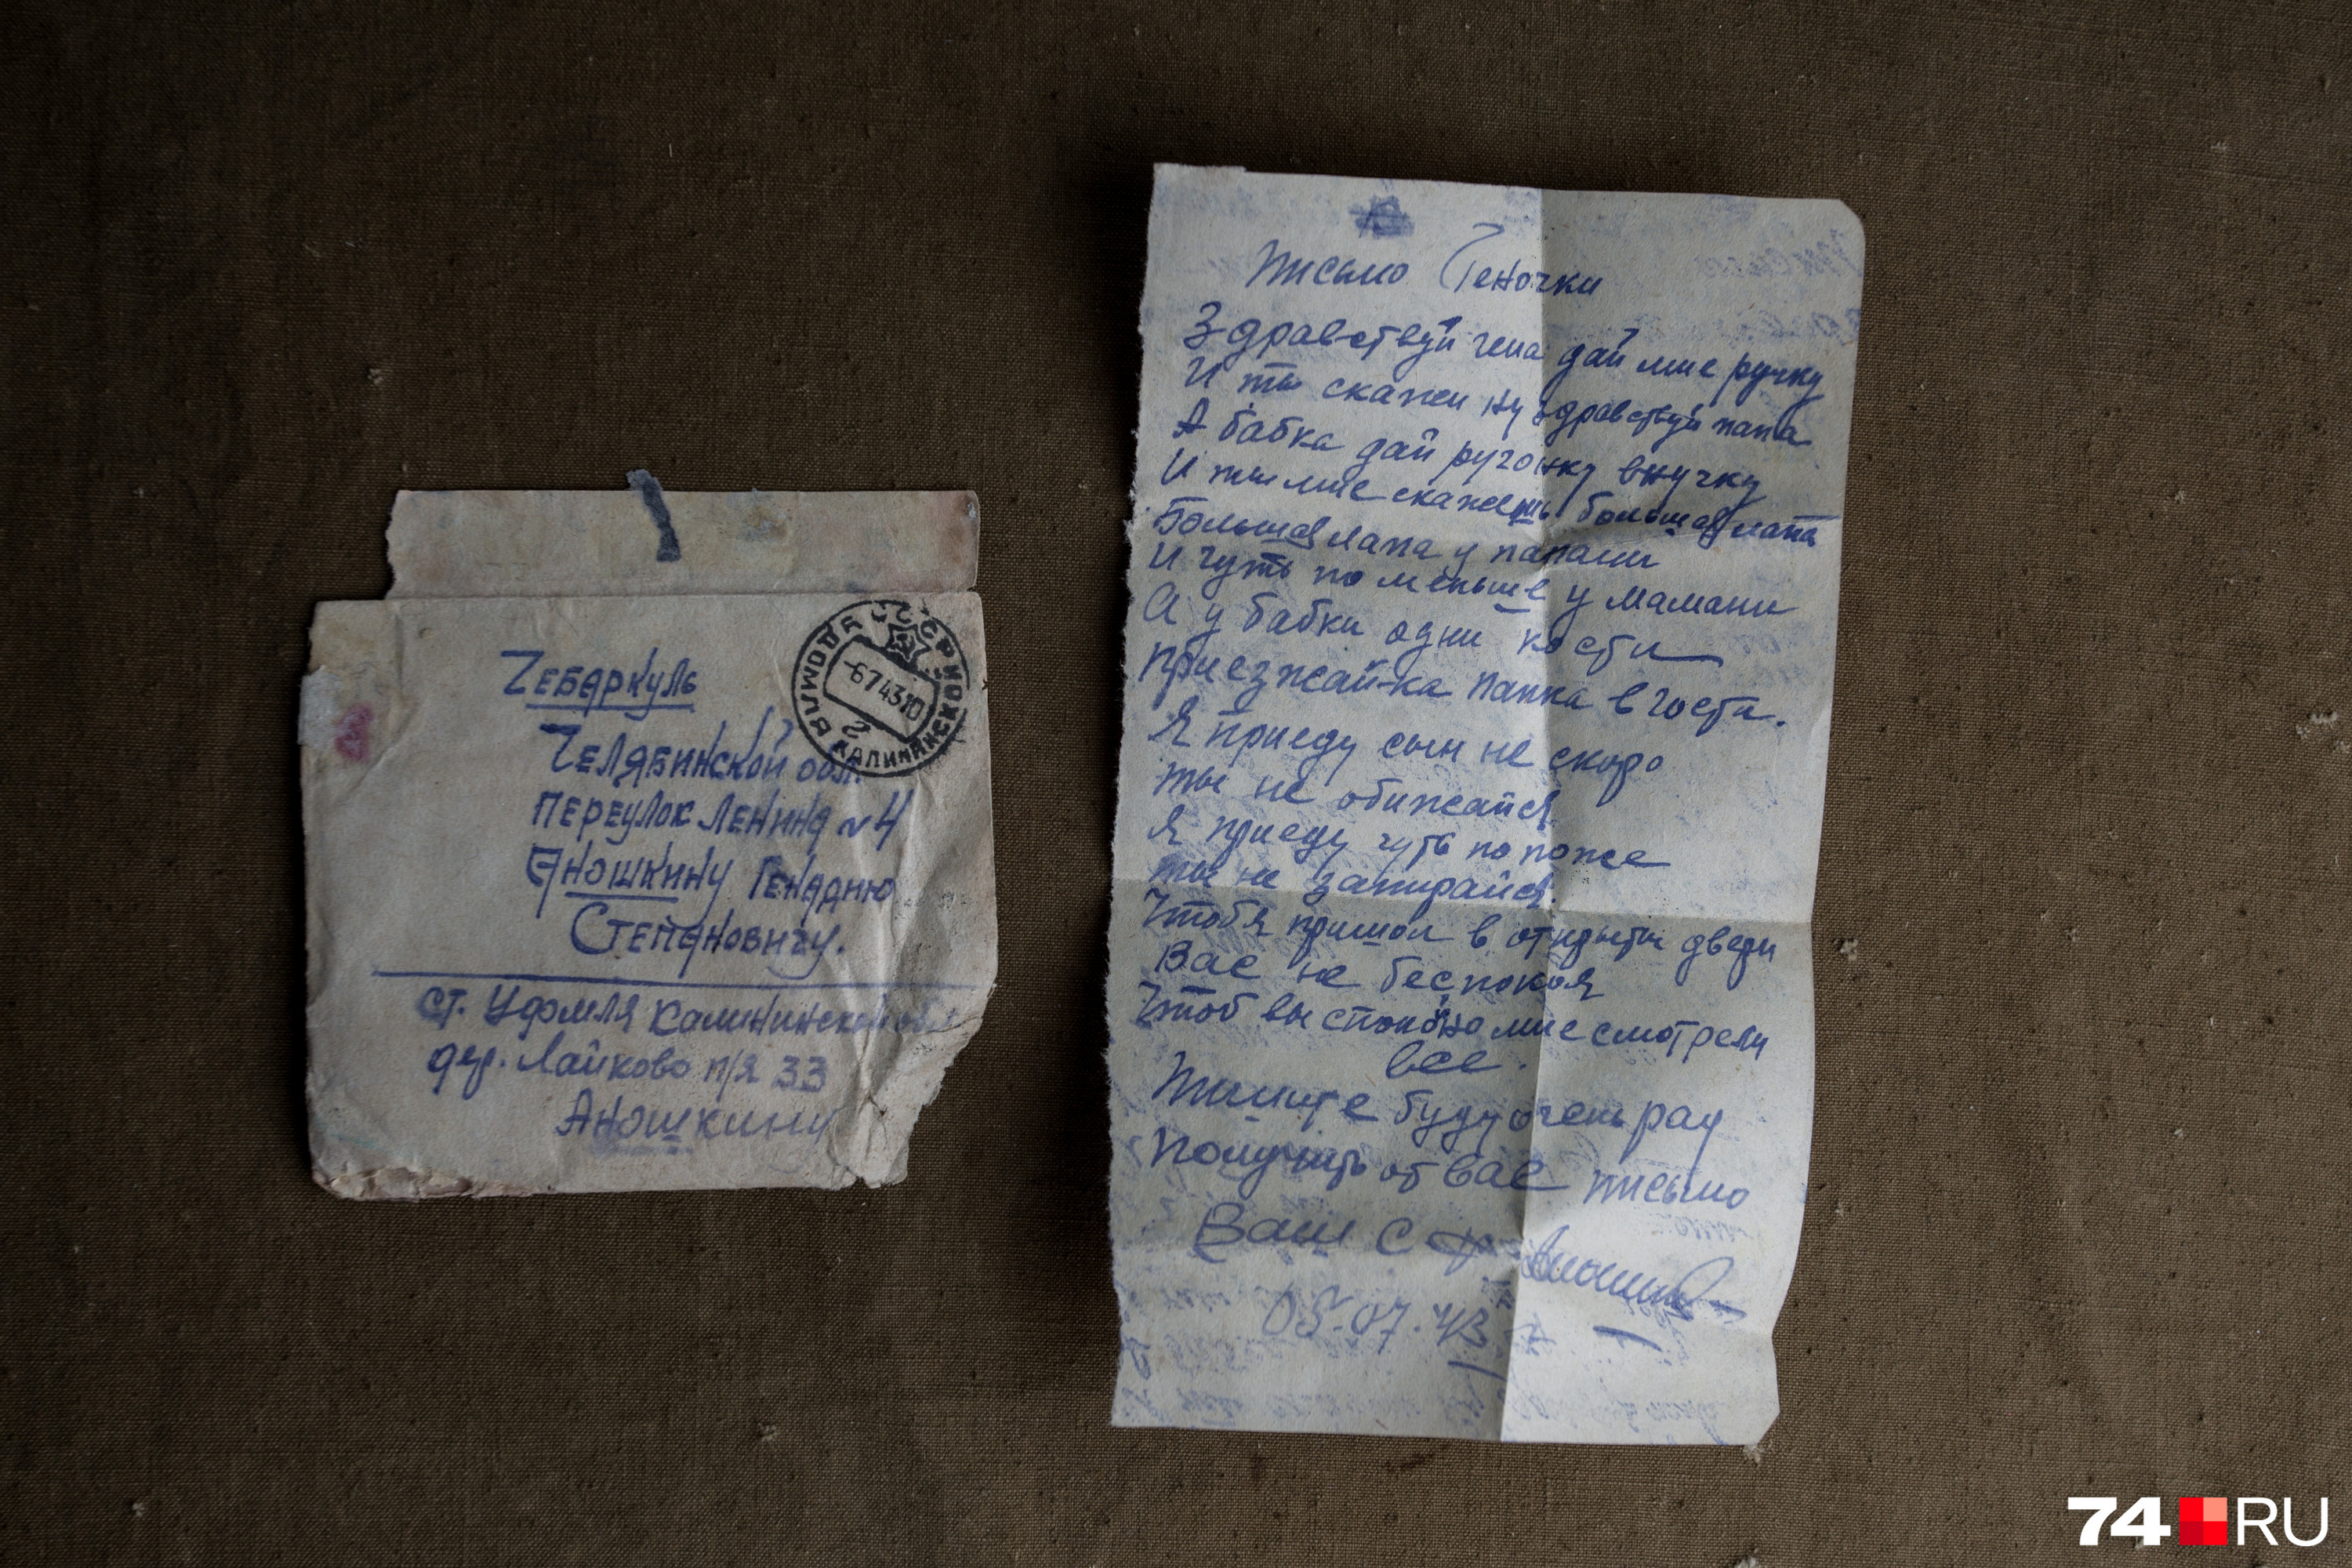 Чебаркуль
Челябинской обл.
переулок Ленина №4
Аношкину Генадию
Степановичу.
ст. Удомля Калининской обл
дер. Лайково п/я 33
Аношкину
УДОМЛЯ КАЛИНИНСКОЙ
СССР
-674310
2
Письмо Геночки
Здравствуй гена дай мне ручку
И ты скажи ну здравствуй папа
А бабка дай ручонку внучку
И ты мне скажешь большая лапа
Большая лапа у папани
И чуть по меньше у мамани
А у бабки одни кости
Приезжай-ка папка в гости.
Я приеду сын не скоро
ты не обижайся.
Я приеду чуть по позже
ты не запирайся.
Чтоб я пришол в открыты двери
Вас не беспокоя
Чтоб вы спокойно мне смотрели
все.
Пишите буду очень рад
Получить от вас письмо
Ваш С Аношкин
05.07.43 г
74 RU